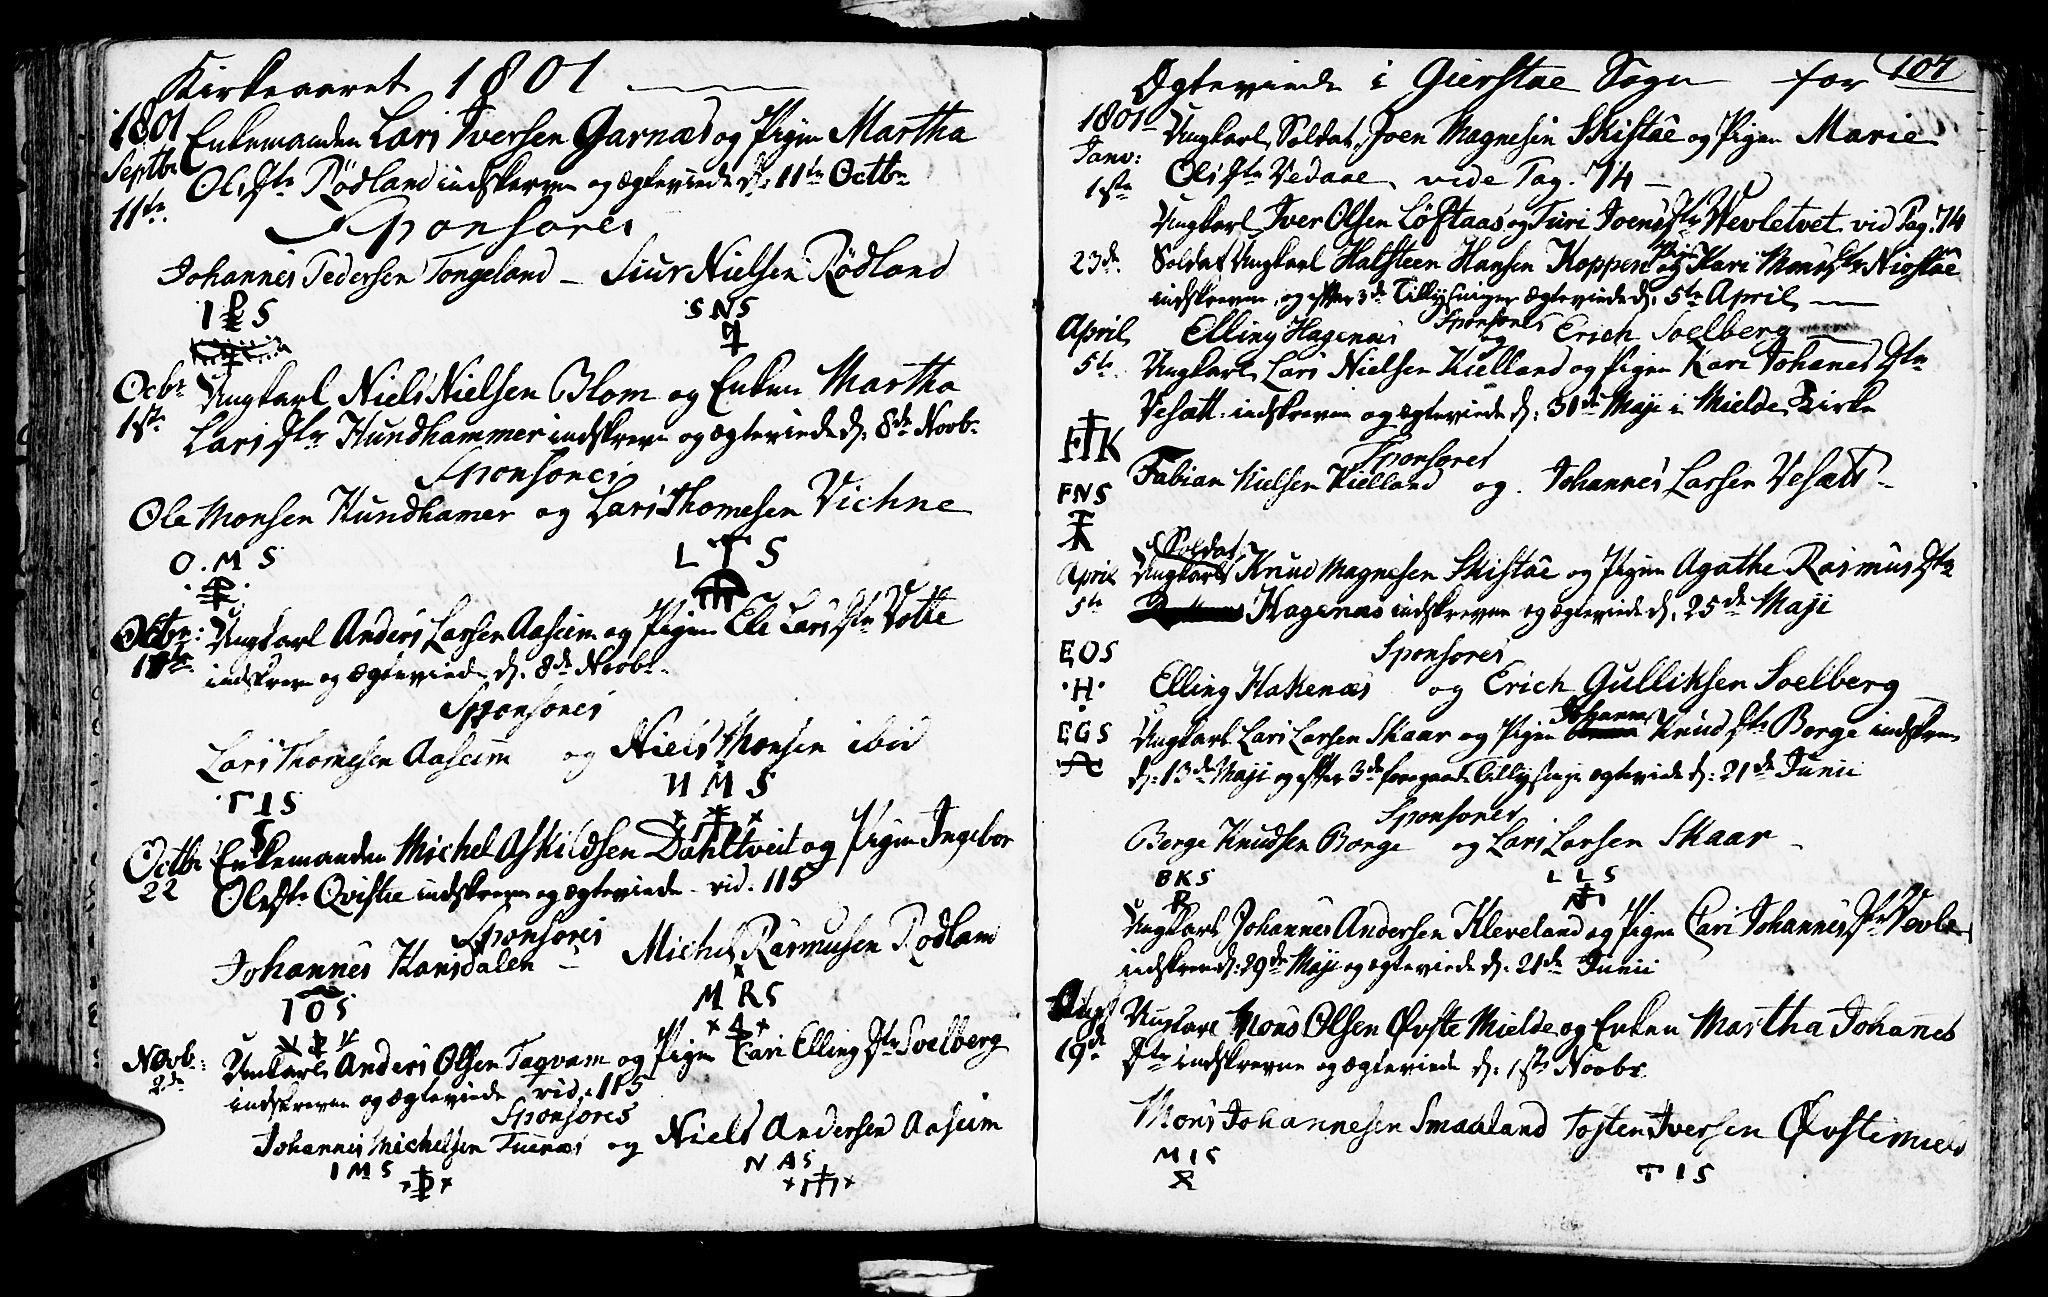 Kirkeaaret 1801
1801 Enkemanden Lars Iversen Garnæs og Pigen Martha
Septbr 11te Ols Dtr Rödland indskreven og ægteviede d: 11te Octbr
Sponsores
Johannes Pedersen Tongeland – Siur Nielsen Rödland
I P S SNS
Octbr 1ste Ungkarl Niels Nielsen Blom og Enken Martha
Lars Dtr Hundhammer indskreven og ægteviede d: 8de Novbr
Sponsores
Ole Monsen Hundhamer og Lars Thomesen Vichne
O.M S L T S
Octbr: Ungkarl Anders Larsen Aaseim og Pigen Eli Lars Dtr Votte
indskreven og ægteviede d. 8de Novbr.
Sponsores
Lars Thomesen Aaseim og Niels Monsen ibid
T I S N M S
Octbr Enkemanden Michel Askildsen Dahltveit og Pigen Ingebor
22 Ols Dtr Qvistæ indskreven og ægteviede vid. 115
Sponsores
Johannes Hansdalen – Michel Rasmusen Rödland
I O S M R S
Novbr: 2de Ungkarl Anders Olsen Taqvam og Pigen Cari Elling Dtr Soelberg
indskreven og ægteviede vid. 115
Sponsores
Johannes Michelsen Tuenæs og Niels Andersen Aaseim
I M S N A S
Ægteviede i Gierstae Sogn for 104
1801 Ungkarl, Soldat, Joen Magnesen Skistäe og Pigen Marie
Janv: 1ste Ols Dtr Vedaae, vide Pag. 74 –
Ungkarl Iver Olsen Löftaas og Turi Joens Dtr Wevletvet vid Pag. 74
23de Soldat Ungkarl Halsteen Hansen Koppen og Pigen Kari Mons Dtr Niostäe
indskreven, og efter 3de Tillysninger ægteviede d. 5te April
Sponsores
April Elling Hagenæs og Erich Soelberg
5te Ungkarl Lars Nielsen Kielland og Pigen Kari Johanes Dtr
Vesætt: indskreven og ægteviede d: 31de Maji i Mielde Kirke
Sponsores
Fabian Nielsen Kielland og Johannes Larsen Vesætt –
FNS
Soldat
April Ungkarl Knud Magnesen Skistäe og Pigen Agathe Rasmus Dtr
5te Hagenæs indskreven og ægteviede d. 25de Maji
EOS Sponsores
·H· Elling Hakenæs og Erich Gulliksen Soelberg
Johanna
EGS Ungkarl Lars Larsen Skaar og Pigen Knud Dtr Borge indskrev
d: 13de Maji og efter 3de foregaaede Tillysninger ægteviede d: 21de Junii
Sponsores
Berge Knudsen Borge og Lars Larsen Skaar –
BKS L L S
Ungkarl Johannes Andersen Kleveland og Pigen Cari Johannes Dtr
indskreven d: 29de Maji og ægteviede d. 21de Junii
Aug Ungkarl Mons Olsen Øvste Mielde og Enken Martha Johanes
19de Dtr indskreven og ægteviede d: 1ste Novbr
Mons Johannesen Smaaland Tosten Iversen Øvstemield
M I S T I S